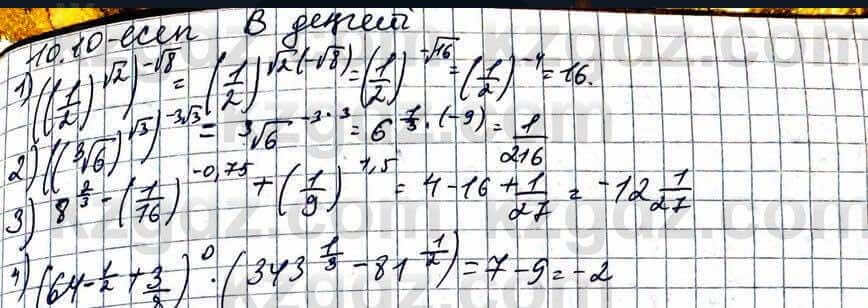 10.10-есеп В деңгейі
1) ((1/2)^√2)^-√8 = (1/2)^√2(-√8) = (1/2)^-√16 = (1/2)^-4 = 16.
2) ((∛6)^√3)^-3√3 = ∛6^-3·3 = 6^1/3·(-9) = 1/216
3) 8^2/3 - (1/16)^-0,75 + (1/9)^1,5 = 4-16+1/27 = -12 1/27
4) (64^-1/2 + 3/8)^0 · (343^1/3 - 81^1/2) = 7-9 = -2